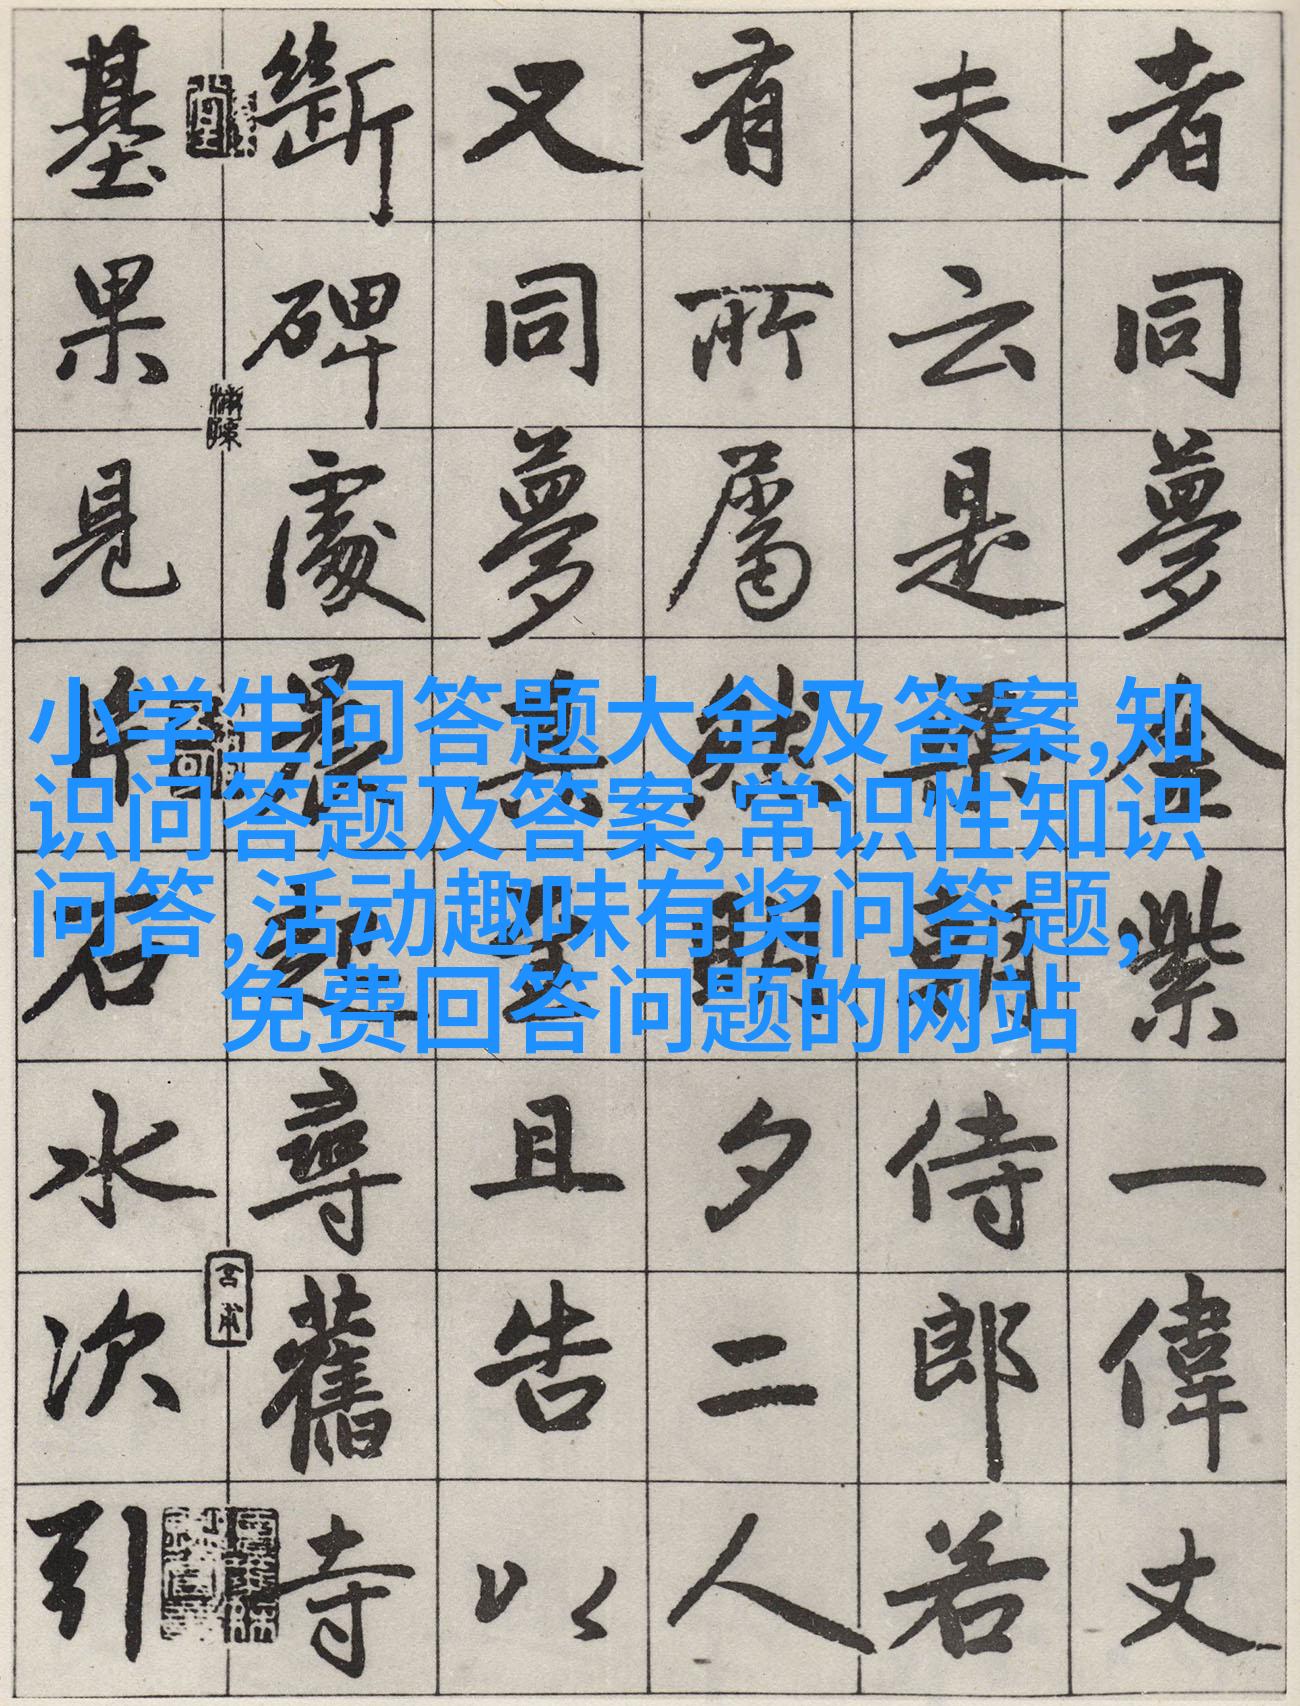 者同夢金紫一偉丈
夫云是侍郎若
有所屬然夕二人
又同夢且告以
斷碑處尋舊寺
基果見片石水次引
小学生问答题大全及答案,知
识问答题及答案,常识性知识
问答,活动趣味有奖问答题,
免费回答问题的网站